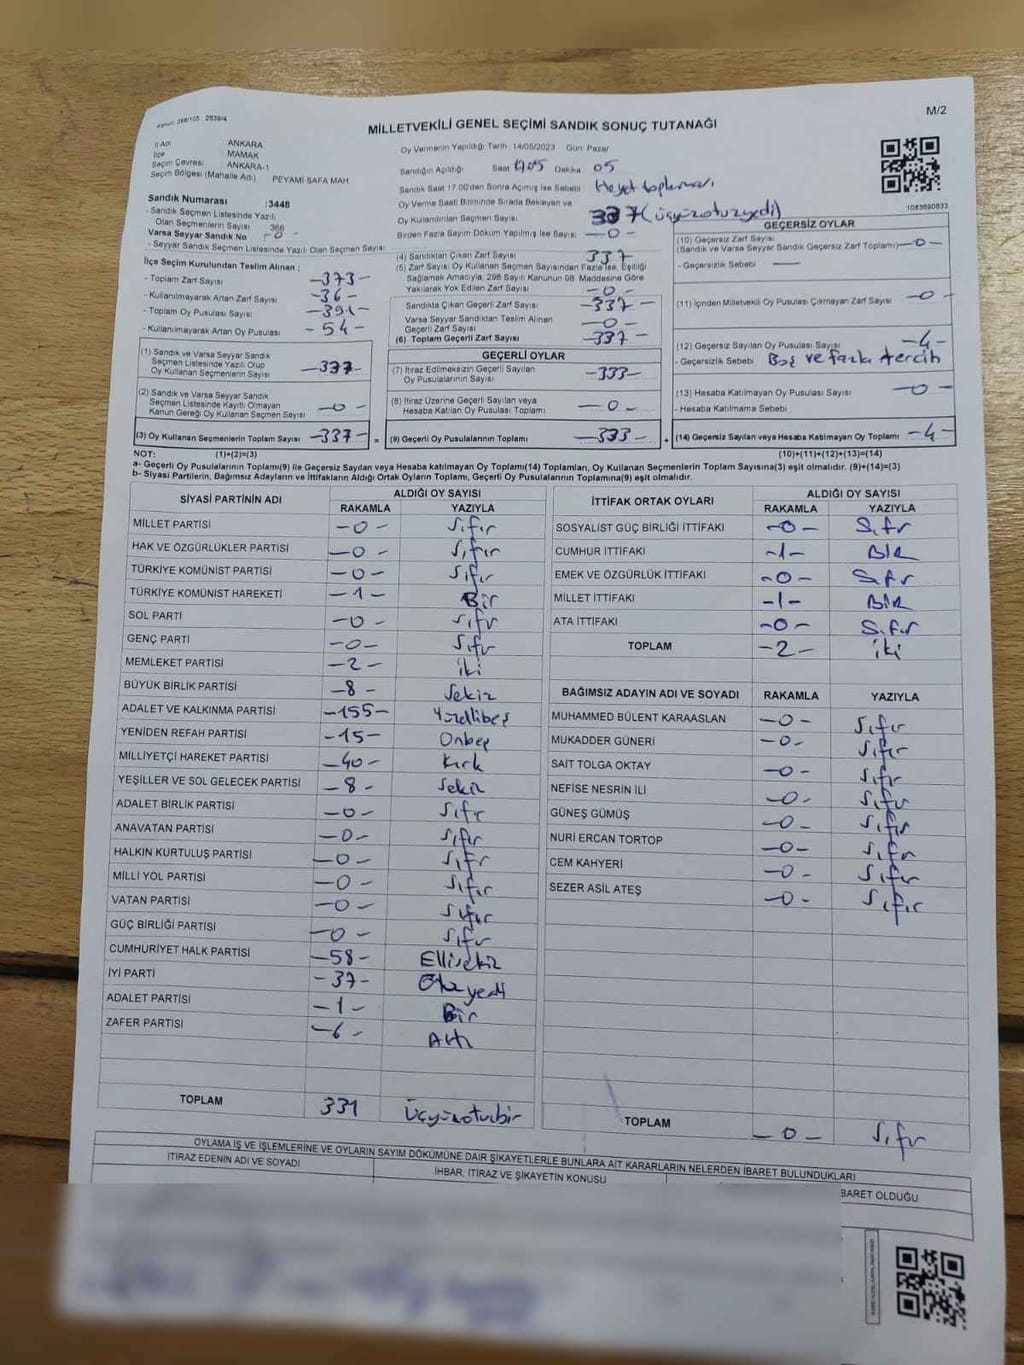 Kanun: 298/105 , 2839/4
M/2
MİLLETVEKİLİ GENEL SEÇİMİ SANDIK SONUÇ TUTANAĞI
İl Adı ANKARA
İlçe MAMAK
Seçim Çevresi ANKARA-1
Seçim Bölgesi (Mahalle Adı) PEYAMİ SAFA MAH.
Oy Vermenin Yapıldığı Tarih :14/05/2023 Gün: Pazar
Sandığın Açıldığı Saat 17:05 Dakika 05
Sandık Saat 17.00'den Sonra Açılmış İse Sebebi Heyet toplaması
Oy Verme Saati Bitiminde Sırada Bekleyen ve
Oy Kullandırılan Seçmen Sayısı 337 (üçyüzotuzyedi)
Birden Fazla Sayım Döküm Yapılmış İse Sayısı —0—
1083690833
Sandık Numarası :3448
- Sandık Seçmen Listesinde Yazılı
Olan Seçmenlerin Sayısı 366
Varsa Seyyar Sandık No -0-
- Seyyar Sandık Listesinde Yazılı Olan Seçmen Sayısı:
İlçe Seçim Kurulundan Teslim Alınan ;
- Toplam Zarf Sayısı -373-
- Kullanılmayarak Artan Zarf Sayısı -36-
- Toplam Oy Pusulası Sayısı -391-
- Kullanılmayarak Artan Oy Pusulası -54-
(1) Sandık ve Varsa Seyyar Sandık
Seçmen Listesinde Yazılı Olup
Oy Kullanan Seçmenlerin Sayısı -337-
(2) Sandık ve Varsa Seyyar Sandık
Seçmen Listesinde Kayıtlı Olmayan
Kanun Gereği Oy Kullanan Seçmen Sayısı -0-
(3) Oy Kullanan Seçmenlerin Toplam Sayısı -337- =
(4) Sandıktan Çıkan Zarf Sayısı 337
(5) Zarf Sayısı Oy Kullanan Seçmen Sayısından Fazla İse, Eşitliği
Sağlamak Amacıyla, 298 Sayılı Kanunun 98. Maddesine Göre
Yakılarak Yok Edilen Zarf Sayısı -0-
Sandıkta Çıkan Geçerli Zarf Sayısı -337-
Varsa Seyyar Sandıktan Teslim Alınan
Geçerli Zarf Sayısı -0-
(6) Toplam Geçerli Zarf Sayısı -337-
GEÇERLİ OYLAR
(7) İtiraz Edilmeksizin Geçerli Sayılan
Oy Pusulalarının Sayısı -333-
(8) İtiraz Üzerine Geçerli Sayılan veya
Hesaba Katılan Oy Pusulası Toplamı -0-
(9) Geçerli Oy Pusulalarının Toplamı -333- +
GEÇERSİZ OYLAR
(10) Geçersiz Zarf Sayısı
(Sandık ve Varsa Seyyar Sandık Geçersiz Zarf Toplamı) -0-
- Geçersizlik Sebebi —
(11) İçinden Milletvekili Oy Pusulası Çıkmayan Zarf Sayısı -0-
(12) Geçersiz Sayılan Oy Pusulası Sayısı -4-
- Geçersizlik Sebebi Boş ve fazla tercih
(13) Hesaba Katılmayan Oy Pusulası Sayısı -0-
- Hesaba Katılmama Sebebi
(14) Geçersiz Sayılan veya Hesaba Katılmayan Oy Toplamı -4-
NOT: (1)+(2)=(3) (10)+(11)+(12)+(13)=(14)
a- Geçerli Oy Pusulalarının Toplamı(9) ile Geçersiz Sayılan veya Hesaba katılmayan Oy Toplamı(14) Toplamları, Oy Kullanan Seçmenlerin Toplam Sayısına(3) eşit olmalıdır. (9)+(14)=(3)
b- Siyasi Partilerin, Bağımsız Adayların ve İttifakların Aldığı Ortak Oyların Toplamı, Geçerli Oy Pusulalarının Toplamına(9) eşit olmalıdır.
SİYASİ PARTİNİN ADI ALDIĞI OY SAYISI
RAKAMLA YAZIYLA
MİLLET PARTİSİ -0- Sıfır
HAK VE ÖZGÜRLÜKLER PARTİSİ -0- Sıfır
TÜRKİYE KOMÜNİST PARTİSİ -0- Sıfır
TÜRKİYE KOMÜNİST HAREKETİ -1- Bir
SOL PARTİ -0- Sıfır
GENÇ PARTİ -0- Sıfır
MEMLEKET PARTİSİ -2- iki
BÜYÜK BİRLİK PARTİSİ -8- Sekiz
ADALET VE KALKINMA PARTİSİ -155- Yüzellibeş
YENİDEN REFAH PARTİSİ -15- Onbeş
MİLLİYETÇİ HAREKET PARTİSİ -40- Kırk
YEŞİLLER VE SOL GELECEK PARTİSİ -8- Sekiz
ADALET BİRLİK PARTİSİ -0- Sıfır
ANAVATAN PARTİSİ -0- Sıfır
HALKIN KURTULUŞ PARTİSİ -0- Sıfır
MİLLİ YOL PARTİSİ -0- Sıfır
VATAN PARTİSİ -0- Sıfır
GÜÇ BİRLİĞİ PARTİSİ -0- Sıfır
CUMHURİYET HALK PARTİSİ -58- Ellisekiz
İYİ PARTİ -37- Otuzyedi
ADALET PARTİSİ -1- Bir
ZAFER PARTİSİ -6- Altı
TOPLAM 331 Üçyüzotuzbir
İTTİFAK ORTAK OYLARI ALDIĞI OY SAYISI
RAKAMLA YAZIYLA
SOSYALİST GÜÇ BİRLİĞİ İTTİFAKI -0- Sıfır
CUMHUR İTTİFAKI -1- BİR
EMEK VE ÖZGÜRLÜK İTTİFAKI -0- Sıfır
MİLLET İTTİFAKI -1- BİR
ATA İTTİFAKI -0- Sıfır
TOPLAM -2- iki
BAĞIMSIZ ADAYIN ADI VE SOYADI RAKAMLA YAZIYLA
MUHAMMED BÜLENT KARAASLAN -0- Sıfır
MUKADDER GÜNERİ -0- Sıfır
SAİT TOLGA OKTAY -0- Sıfır
NEFİSE NESRİN İLİ -0- Sıfır
GÜNEŞ GÜMÜŞ -0- Sıfır
NURİ ERCAN TORTOP -0- Sıfır
CEM KAHYERİ -0- Sıfır
SEZER ASİL ATEŞ -0- Sıfır
TOPLAM -0- Sıfır
OYLAMA İŞ VE İŞLEMLERİNE VE OYLARIN SAYIM DÖKÜMÜNE DAİR ŞİKAYETLERLE BUNLARA AİT KARARLARIN NELERDEN İBARET BULUNDUKLARI
İTİRAZ EDENİN ADI VE SOYADI İHBAR, İTİRAZ VE ŞİKAYETİN KONUSU BARET OLDUĞU